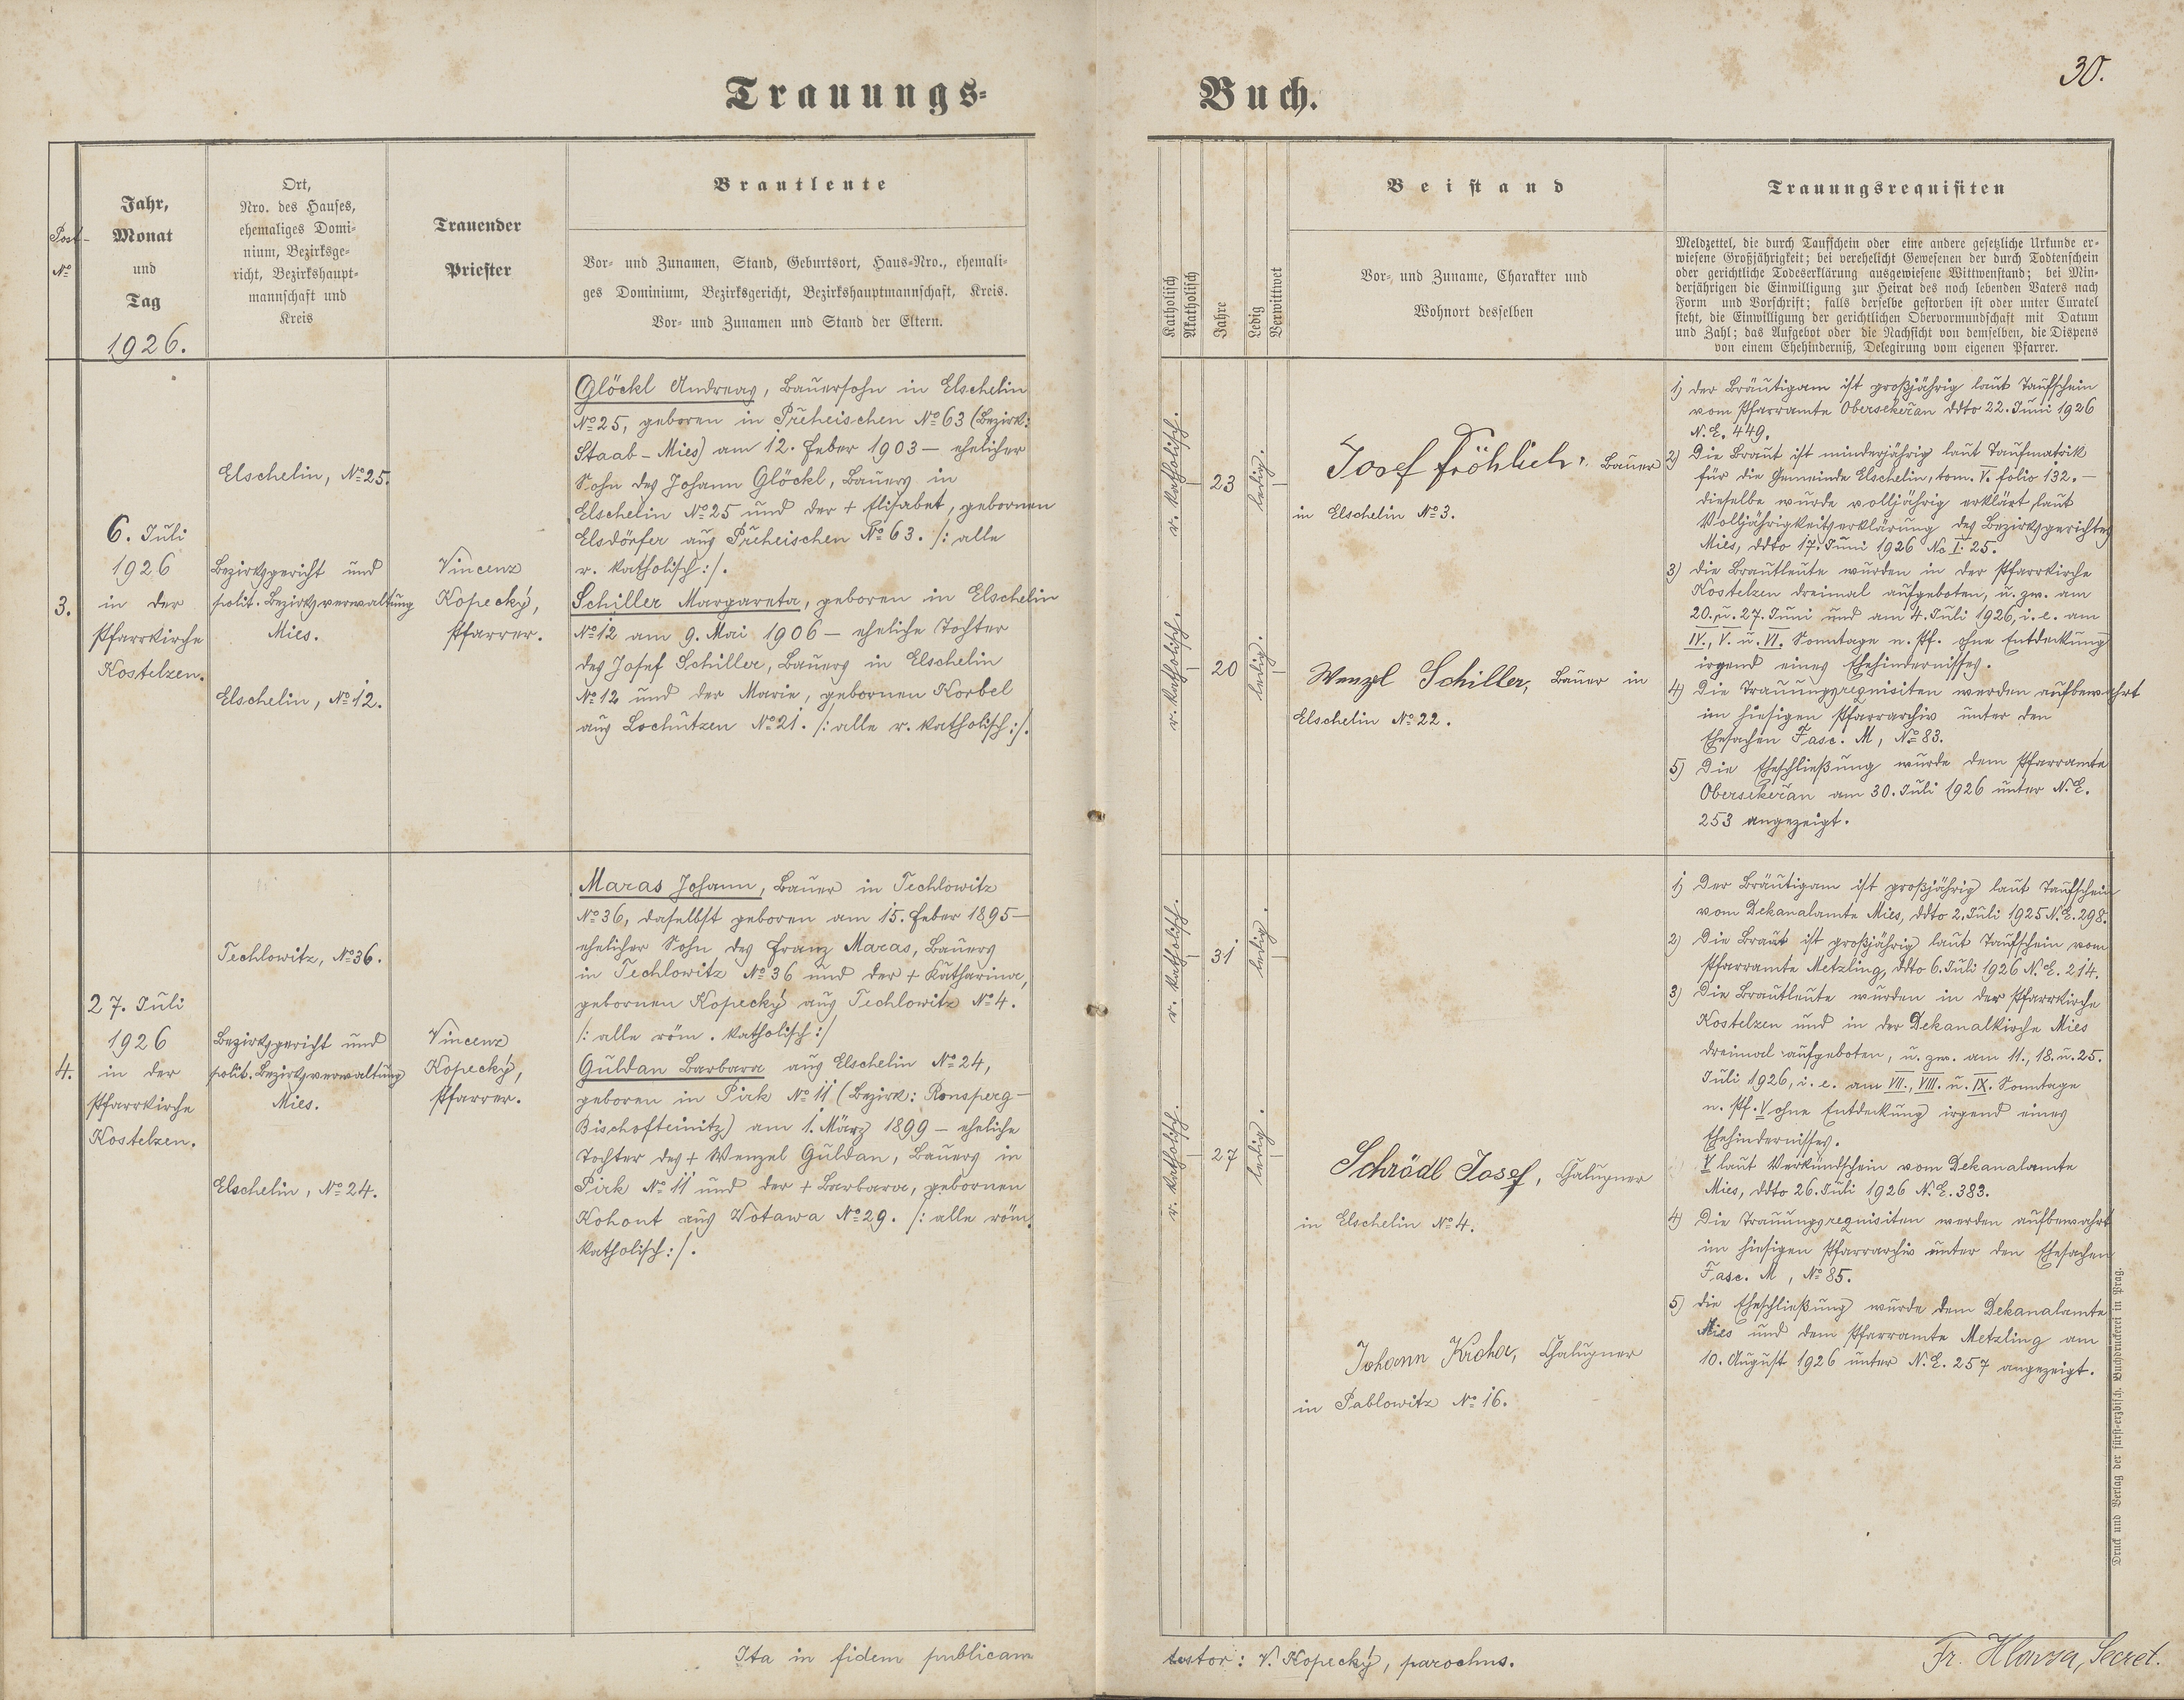 Trauungs-
Buch.
30.
Post-
No
Jahr,
Monat
und
Tag
1926.
Ort,
Nro. des Hauses,
ehemaliges Domi-
nium, Bezirksge-
richt, Bezirkshaupt-
mannschaft und
Kreis
Trauender
Priester
Brautleute
Vor- und Zunamen, Stand, Geburtsort, Haus-Nro., ehemali-
ges Dominium, Bezirksgericht, Bezirkshauptmannschaft, Kreis.
Vor- und Zunamen und Stand der Eltern.
Katholisch
Akatholisch
Jahre
Ledig
Verwittwet
Beistand
Vor- und Zuname, Charakter und
Wohnort desselben
Trauungsrequisiten
Meldzettel, die durch Taufschein oder eine andere gesetzliche Urkunde er-
wiesene Großjährigkeit; bei verehelicht Gewesenen der durch Todtenschein
oder gerichtliche Todeserklärung ausgewiesene Wittwenstand; bei Min-
derjährigen die Einwilligung zur Heirat des noch lebenden Vaters nach
Form und Vorschrift; falls derselbe gestorben ist oder unter Curatel
steht, die Einwilligung der gerichtlichen Obervormundschaft mit Datum
und Zahl; das Aufgebot oder die Nachsicht von demselben, die Dispens
von einem Ehehinderniß, Delegirung vom eigenen Pfarrer.
3.
6. Juli
1926
in der
Pfarrkirche
Kostelzen.
Elschelin, No 25.
Bezirksgericht und
polit. Bezirksverwaltung
Mies.
Elschelin, No 12.
Vincenz
Kopecký,
Pfarrer.
Glöckl Andreas, Bauersohn in Elschelin
No 25, geboren in Přeheischen No 63 (Bezirk:
Staab - Mies) am 12. Feber 1903 — ehelicher
Sohn des Johann Glöckl, Bauers in
Elschelin No 25 und der + Elisabet, gebornen
Elsdörfer aus Přeheischen No 63. /: alle
r. katholisch :/.
Schiller Margareta, geboren in Elschelin
No 12 am 9. Mai 1906 — eheliche Tochter
des Josef Schiller, Bauers in Elschelin
No 12 und der Marie, gebornen Korbel
aus Lochutzen No 21. /: alle r. katholisch :/.
r. katholisch.
23
ledig.
r. katholisch.
20
ledig.
Josef Fröhlich, Bauer
in Elschelin No 3.
Wenzl Schiller, Bauer in
Elschelin No 22.
1) der Bräutigam ist großjährig laut Taufschein
vom Pfarramte Obersekeřan ddto 22. Juni 1926
N. E. 449.
2) Die Braut ist minderjährig laut Taufmatrik
für die Gemeinde Elschelin, tom. V. folio 132. —
dieselbe wurde volljährig erklärt laut
Volljährigkeitserklärung des Bezirksgerichtes
Mies, ddto 17. Juni 1926 Nc I. 25.
3) die Brautleute wurden in der Pfarrkirche
Kostelzen dreimal aufgeboten, u. zw. am
20. u. 27. Juni und am 4. Juli 1926, i. e. am
IV., V. u. VI. Sonntage n. Pf. ohne Entdeckung
irgend eines Ehehindernisses.
4) Die Trauungsrequisiten werden aufbewahrt
im hiesigen Pfarrarchiv unter den
Ehesachen Fasc. M, No 83.
5) Die Eheschließung wurde dem Pfarramte
Obersekeřan am 30. Juli 1926 unter N. E.
253 angezeigt.
4.
27. Juli
1926
in der
Pfarrkirche
Kostelzen.
Techlowitz, No 36.
Bezirksgericht und
polit. Bezirksverwaltung
Mies.
Elschelin, No 24.
Vincenz
Kopecký,
Pfarrer.
Maras Johann, Bauer in Techlowitz
No 36, daselbst geboren am 15. Feber 1895 —
ehelicher Sohn des Franz Maras, Bauers
in Techlowitz No 36 und der + Katharina,
gebornen Kopecký aus Techlowitz No 4.
/: alle röm. katholisch :/
Guldan Barbara aus Elschelin No 24,
geboren in Pirk No 11 (Bezirk: Ronsperg -
Bischofteinitz) am 1. März 1899 — eheliche
Tochter des + Wenzel Guldan, Bauers in
Pirk No 11 und der + Barbara, gebornen
Kohout aus Wotawa No 29. /: alle röm.
katholisch :/.
r. katholisch.
31
ledig.
r. katholisch.
27
ledig.
Schrödl Josef, Chalupner
in Elschelin No 4.
Johann Kroha, Chalupner
in Pablowitz No 16.
1) Der Bräutigam ist großjährig laut Taufschein
vom Dekanalamte Mies, ddto 2. Juli 1925 N. E. 298.
2) Die Braut ist großjährig laut Taufschein vom
Pfarramte Metzling, ddto 6. Juli 1926 N. E. 214.
3) Die Brautleute wurden in der Pfarrkirche
Kostelzen und in der Dekanalkirche Mies
dreimal aufgeboten, u. zw. am 11., 18. u. 25.
Juli 1926, i. e. am VII., VIII. u. IX. Sonntage
n. Pf. V ohne Entdeckung irgend eines
Ehehindernisses.
V laut Verkündschein vom Dekanalamte
Mies, ddto 26. Juli 1926 N. E. 383.
4) Die Trauungsrequisiten werden aufbewahrt
im hiesigen Pfarrarchiv unter den Ehesachen
Fasc. M, No 85.
5) die Eheschließung wurde dem Dekanalamte
Mies und dem Pfarramte Metzling am
10. August 1926 unter N. E. 257 angezeigt.
Druck und Verlag der fürst-erzbisch. Buchdruckerei in Prag.
Ita in fidem publicam
testor: V. Kopecký, parochus.
Fr. Hlavsa, Secret.